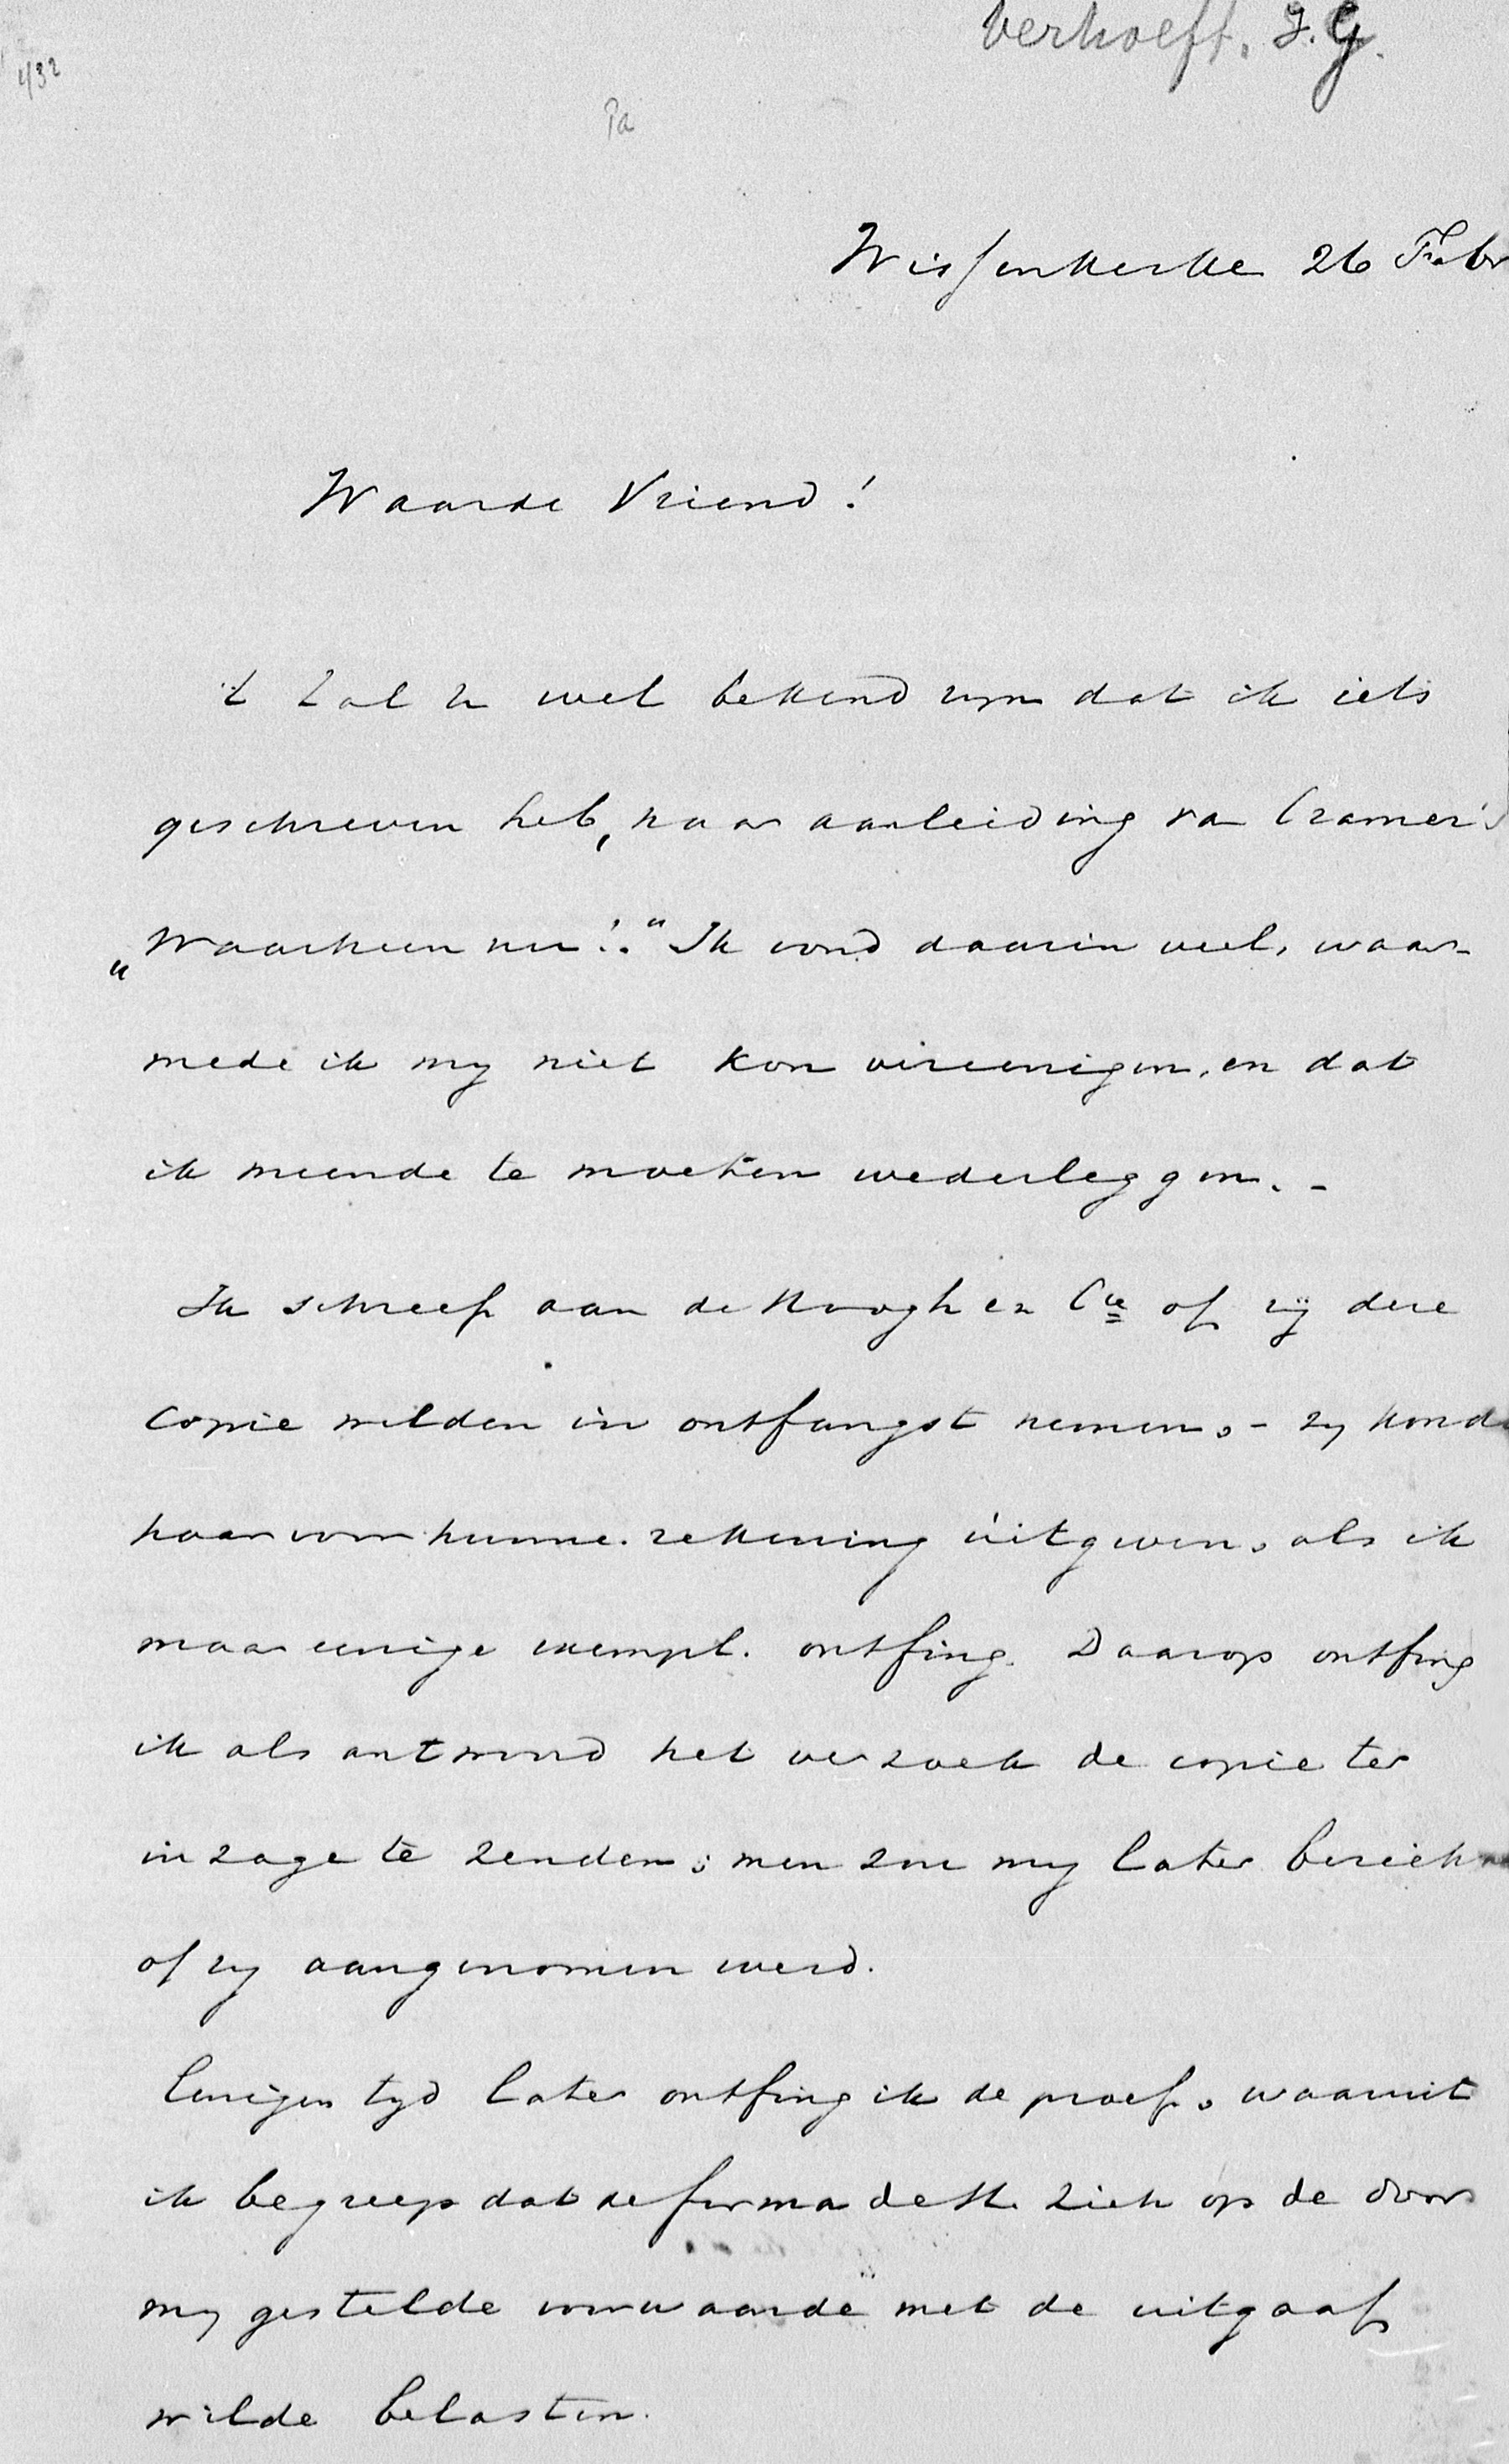 Verhoeff. J.G.
432
Pa
Wissenkerke 26 Febr
Waarde Vriend!
't Zal U wel bekend zyn dat ik iets
geschreven heb, naar aanleiding van Cramer's
„Waarheen nu!." Ik vond daarin veel, waar-
mede ik my niet kon vereenigen, en dat
ik meende te moeten wederleggen. -
Ik schreef aan de Hoogh en Cie of zij deze
copie wilden in ontfangst nemen, - zy konde
haar voor hunne rekening uitgeven, als ik
maar eenige exempl. ontfing. Daarop ontfing
ik als antwoord het verzoek de copie ter
inzage te zenden; men zou my later berichten
of zy aangenomen werd.
Eenigen tyd later ontfing ik de proef, waaruit
ik begreep dat de firma de H. zich op de door
my gestelde voorwaarde met de uitgaaf
wilde belasten.